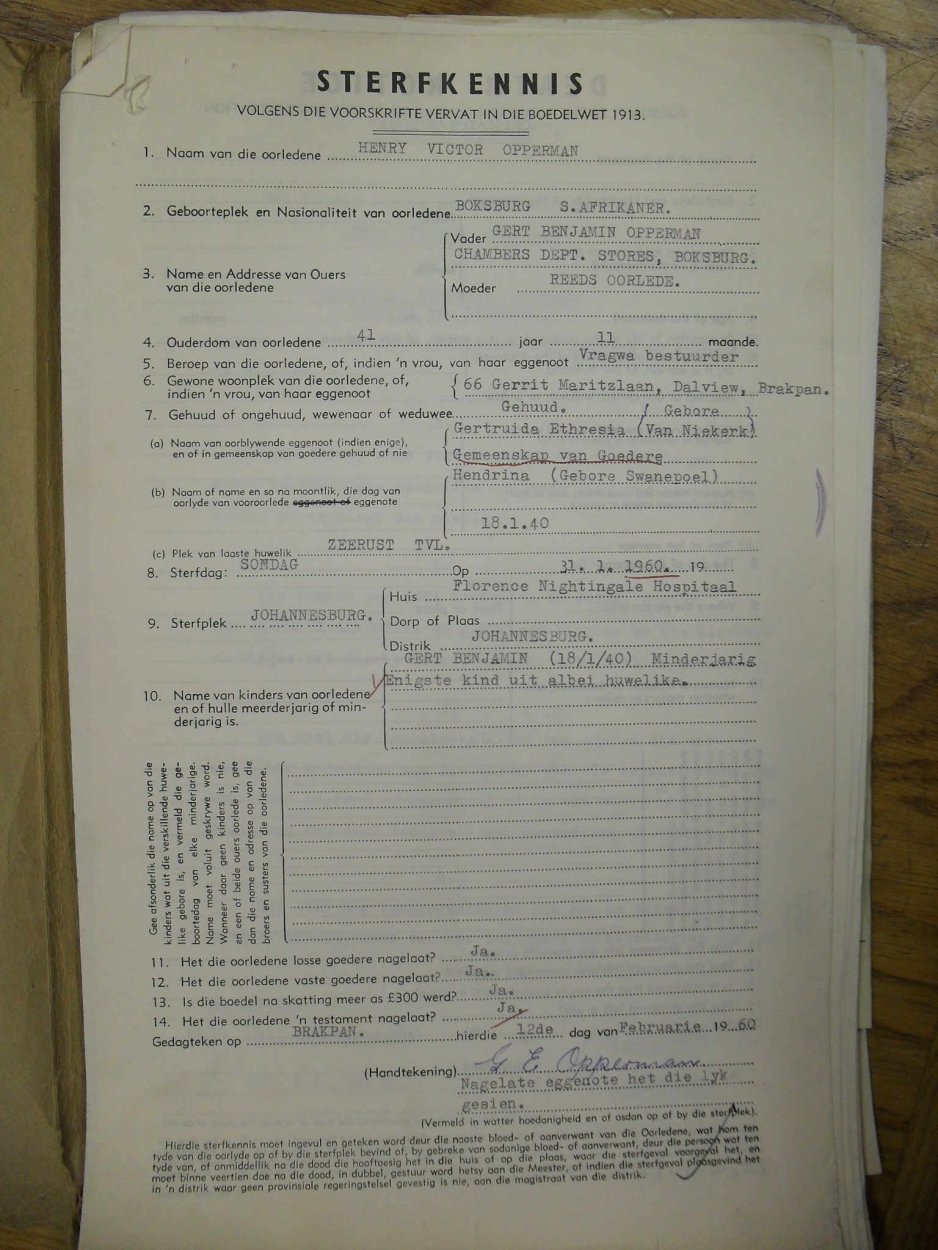 STERFKENNIS
VOLGENS DIE VOORSKRIFTE VERVAT IN DIE BOEDELWET 1913.
1. Naam van die oorledene HENRY VICTOR OPPERMAN
2. Geboorteplek en Nasionaliteit van oorledene BOKSBURG S.AFRIKANER.
3. Name en Addresse van Ouers
van die oorledene
Vader GERT BENJAMIN OPPERMAN
CHAMBERS DEPT. STORES, BOKSBURG.
Moeder REEDS OORLEDE.
4. Ouderdom van oorledene 41 jaar 11 maande.
5. Beroep van die oorledene, of, indien 'n vrou, van haar eggenoot Vragwa bestuurder
6. Gewone woonplek van die oorledene, of,
indien 'n vrou, van haar eggenoot
66 Gerrit Maritzlaan, Dalview, Brakpan.
7. Gehuud of ongehuud, wewenaar of weduwee Gehuud.
(a) Naam van oorblywende eggenoot (indien enige),
en of in gemeenskap van goedere gehuud of nie
Gertruida Ethresia (Gebore Van Niekerk)
Gemeenskap van Goedere
(b) Naam of name en so na moontlik, die dag van
oorlyde van vooroorlede eggenoot of eggenote
Hendrina (Gebore Swanepoel)
18.1.40
(c) Plek van laaste huwelik ZEERUST TVL.
8. Sterfdag: SONDAG Op 31. 1. 1960. 19
9. Sterfplek JOHANNESBURG.
Huis Florence Nightingale Hospitaal
Dorp of Plaas
Distrik JOHANNESBURG.
10. Name van kinders van oorledene
en of hulle meerderjarig of min-
derjarig is.
GERT BENJAMIN (18/1/40) Minderjarig
Enigste kind uit albei huwelike.
Gee afsonderlik die name op van die
kinders wat uit die verskillende huwe-
like gebore is, en vermeld die ge-
boortedag van elke minderjarige.
Name moet voluit geskrywe word.
Wanneer daar geen kinders is nie,
en een of beide ouers oorlede is, gee
dan die name en adresse op van die
broers en susters van die oorledene.
11. Het die oorledene losse goedere nagelaat? Ja.
12. Het die oorledene vaste goedere nagelaat? Ja.
13. Is die boedel na skatting meer as £300 werd? Ja.
14. Het die oorledene 'n testament nagelaat? Ja.
Gedagteken op BRAKPAN. hierdie 12de dag van Februarie 19 60
(Handtekening) G E Opperman
Nagelate eggenote het die lyk
gesien.
(Vermeld in watter hoedanigheid en of asdan op of by die sterfplek).
Hierdie sterfkennis moet ingevul en geteken word deur die naaste bloed- of aanverwant van die Oorledene, wat hom ten
tyde van die oorlyde op of by die sterfplek bevind of, by gebreke van sodanige bloed- of aanverwant, deur die persoon wat ten
tyde van, of onmiddellik na die dood die hooftoesig het in die huis of op die plaas, waar die sterfgeval voorgeval het, en
moet binne veertien dae na die dood, in dubbel, gestuur word hetsy aan die Meester, of indien die sterfgeval plaasgevind het
in 'n distrik waar geen provinsiale regeringstelsel gevestig is nie, aan die magistraat van die distrik.